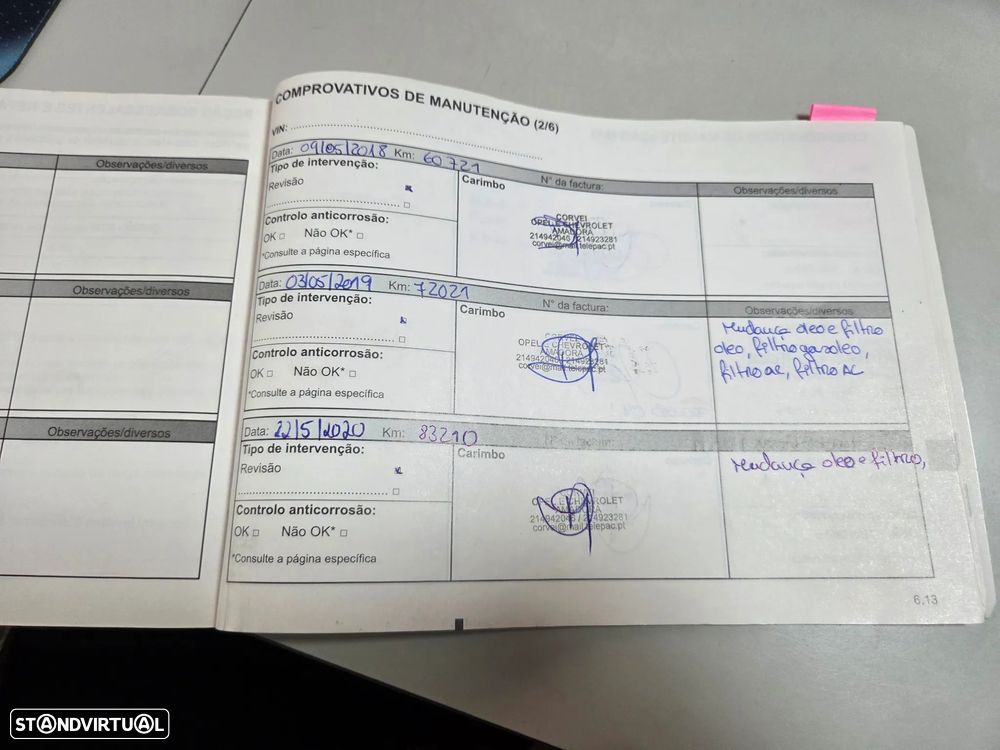 COMPROVATIVOS DE MANUTENÇÃO (2/6)
VIN:
Data: 09/05/2018 Km: 60721 Nº da factura: Observações/diversos
Tipo de intervenção: Carimbo
Revisão
Controlo anticorrosão:
OK □ Não OK* □
*Consulte a página específica
CORVEI
OPEL E CHEVROLET
AMADORA
214942046 / 214923281
corvei@mail.telepac.pt
Observações/diversos
Data: 03/05/2019 Km: 72021 Nº da factura: Observações/diversos
Tipo de intervenção: Carimbo
Revisão
Controlo anticorrosão:
OK □ Não OK* □
*Consulte a página específica
OPEL E CHEVROLET
AMADORA
214942046 / 214923281
corvei@mail.telepac.pt
Mudança oleo e filtro
oleo, filtro gasoleo,
filtro ar, filtro AC
Observações/diversos
Data: 22/5/2020 Km: 83210 Nº da factura:
Tipo de intervenção: Carimbo
Revisão
Controlo anticorrosão:
OK □ Não OK* □
*Consulte a página específica
OPEL E CHEVROLET
AMADORA
214942046 / 214923281
corvei@mail.telepac.pt
Mudança oleo e filtro,
Observações/diversos
6.13
STANDVIRTUAL